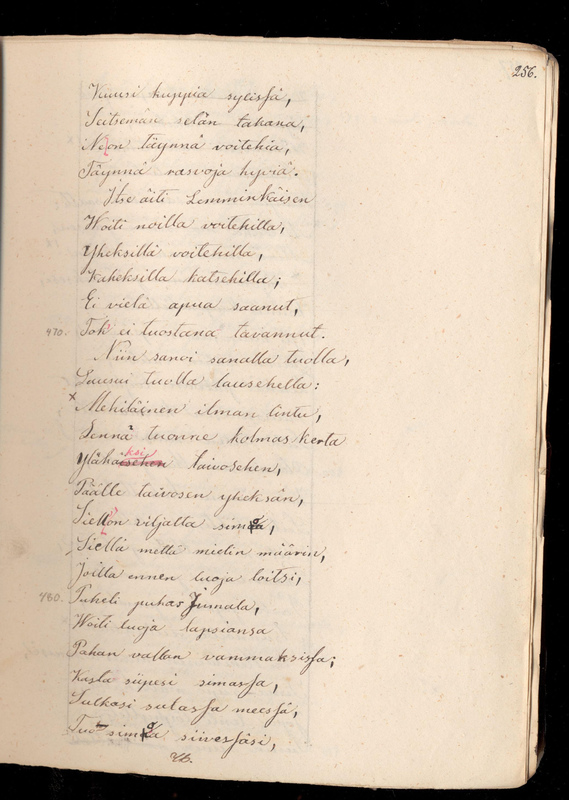 256.
Kuusi kuppia sylissä,
Seitsemän selän takana,
Ne on täynnä voitehia,
Täynnä rasvoja hyviä.
Itse äiti Lemminkäisen
Woiti noilla voitehilla,
Yheksillä voitehilla,
Kaheksilla katsehilla;
Ei vielä apua saanut,
470. Toki ei tuostana tavannut.
Niin sanoi sanalla tuolla,
Lausui tuolla lausehella:
x Mehiläinen ilman lintu,
Lennä tuonne kolmas kerta
ksi
Ylähäisehen taivosehen,
Päälle taivosen yheksän,
Siell' on viljalta simoa,
Siellä mettä mielin määrin,
Joilla ennen luoja loitsi,
480. Puheli puhas Jumala,
Woiti luoja lapsiansa
Pahan vallan vammaksissa;
Kasta siipesi simassa,
Sulkasi sulassa meessä,
Tuo simoa siivessäsi,